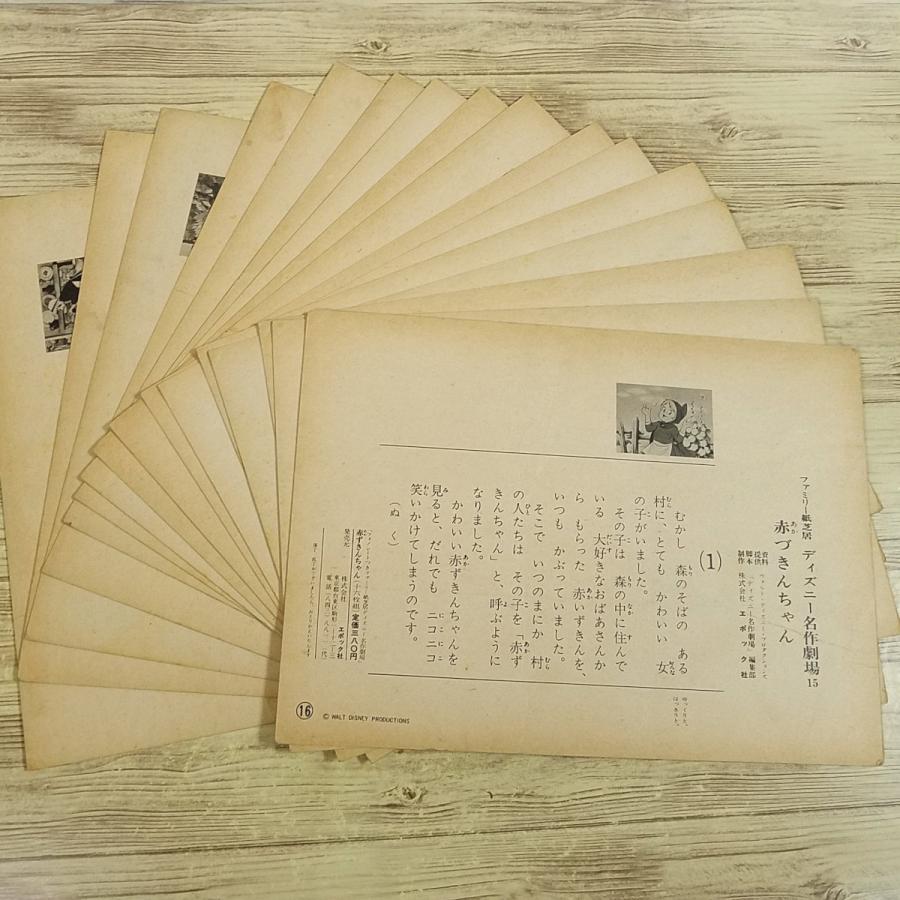 ファミリー紙芝居 ディズニー名作劇場 15
赤づきんちゃん
資料提供 ウォルト・ディズニー・プロダクションズ
脚本 「ディズニー名作劇場」編集部
制作 株式会社 エポック社
(1)
むかし 森のそばの ある
村に、とても かわいい 女
の子がいました。
その子は 森の中に住んで
いる 大好きなおばあさんか
ら もらった 赤いずきんを、
いつも かぶっていました。
そこで いつのまにか 村
の人たちは その子を「赤ず
きんちゃん」と、呼ぶように
なりました。
かわいい赤ずきんちゃんを
見ると、だれでも ニコニコ
笑いかけてしまうのです。
(ぬ く)
ゆっくりと、
はっきりと。
赤ずきんちゃん(十六枚組)定価三八〇円
発売元 株式会社 エポック社
16
© WALT DISNEY PRODUCTIONS